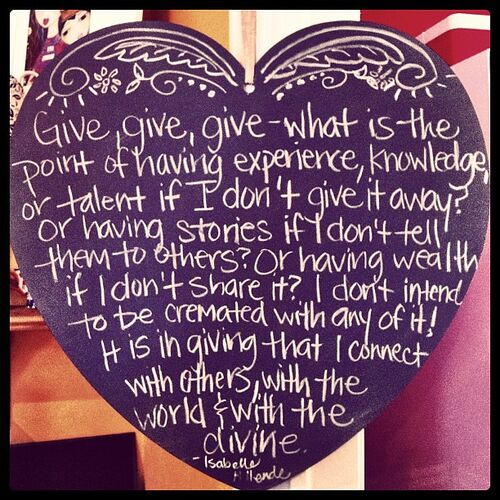 Give, give, give - what is the
point of having experience, knowledge,
or talent if I don't give it away?
Or having stories if I don't tell
them to others? Or having wealth
if I don't share it? I don't intend
to be cremated with any of it!
It is in giving that I connect
with others, with the
world & with the
divine.
- Isabelle
Allende